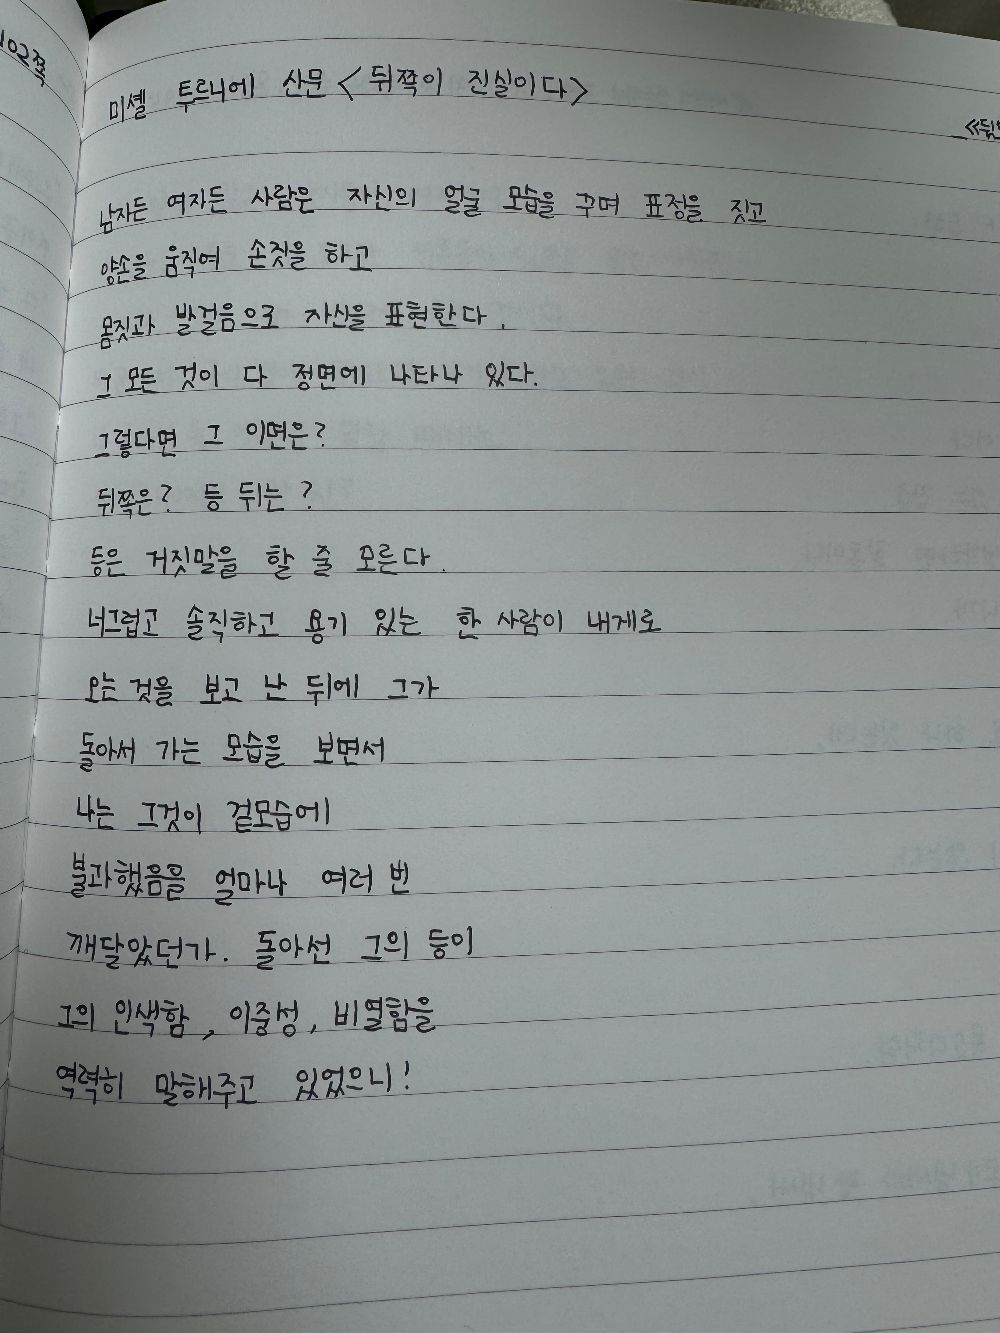 102쪽
미셸 투르니에 산문 < 뒤쪽이 진실이다>
남자든 여자든 사람은 자신의 얼굴 모습을 꾸며 표정을 짓고
양손을 움직여 손짓을 하고
몸짓과 발걸음으로 자신을 표현한다.
그 모든 것이 다 정면에 나타나 있다.
그렇다면 그 이면은?
뒤쪽은? 등 뒤는?
등은 거짓말을 할 줄 모른다.
너그럽고 솔직하고 용기 있는 한 사람이 내게로
오는 것을 보고 난 뒤에 그가
돌아서 가는 모습을 보면서
나는 그것이 겉모습에
불과했음을 얼마나 여러 번
깨달았던가. 돌아선 그의 등이
그의 인색함, 이중성, 비열함을
역력히 말해주고 있었으니!